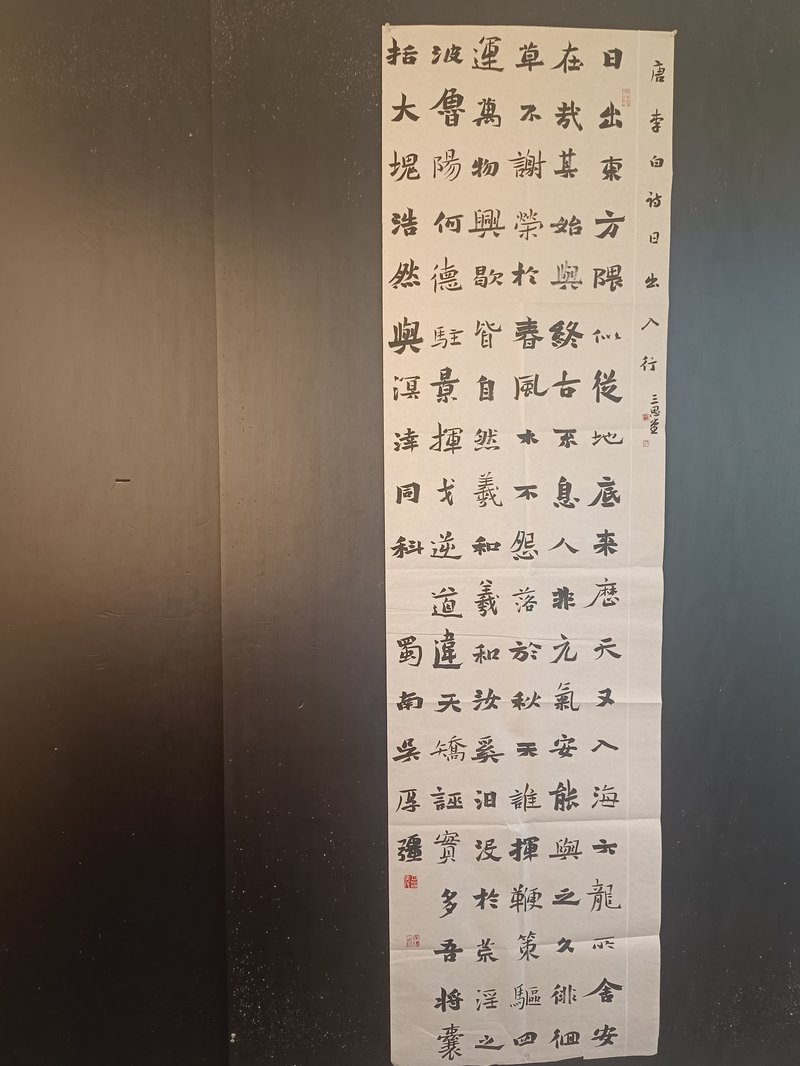 唐李白诗日出入行 三思堂
日出東方隈似從地底来歷天又入海六龍所舍安
在哉其始與終古不息人非元氣安能與之久徘徊
草不謝榮於春風木不怨落於秋天誰揮鞭策驅四
運萬物興歇皆自然羲和羲和汝奚汩没於荒淫之
波魯陽何德駐景揮戈逆道違天矯誣實多吾将囊
括大塊浩然與溟涬同科 蜀南吴厚疆